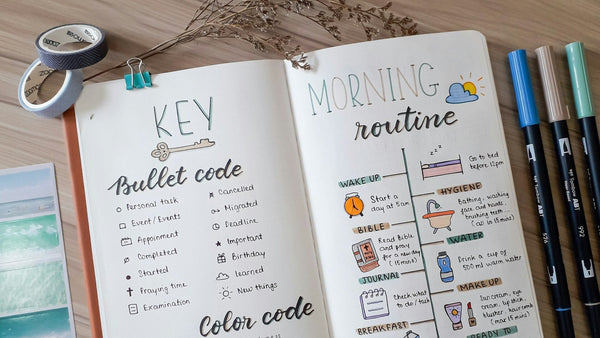 KEY
Bullet code
Personal task
Event/Events
Appoinment
Completed
Started
Praying time
Examination
Cancelled
Migrated
Deadline
Important
Birthday
Learned
New things
Color code
MORNING
routine
zzz
Go to bed
before 12pm
WAKE UP
Start a
day at 5am
HYGIENE
Bathing, washing
face and hands,
brushing teeth
BIBLE
Read Bible
and pray
for a new day
(15 mins)
WATER
Drink a cup of
500 ml warm water
JOURNAL
Check what
to do/task
MAKE UP
Suncream, eye
cream, lip thin,
blusher, haircomb
(max 15 mins)
BREAKFAST
READY TO
ABT
526
ABT
992
ABT